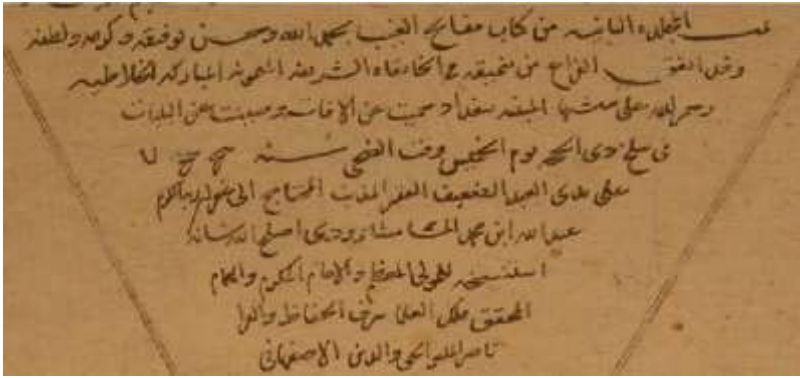 تمت المجلدة الثانية من كتاب مفاتيح الغيب بحمد الله وحسن توفيقه وكرمه ولطفه
وقد اتفق الفراغ من تنميقه في الخانقاه الشريفة الميمونة المباركة الخلاطية
رحم الله على منشئها المبنية ببغداد حميت عن الافات وصينت عن البليات
في سلخ ذي الحجة يوم الخميس وقت الضحى سنة
على يدي العبد الضعيف الفقير المذنب المحتاج الى
عبد الله ابن محمد اصلح الله شانه
استنسخه للمولى المعظم والامام المكرم والهمام
المحقق ملك العلما شرف الحفاظ والقرا
ناصر الملة والحق والدين الاصفهاني